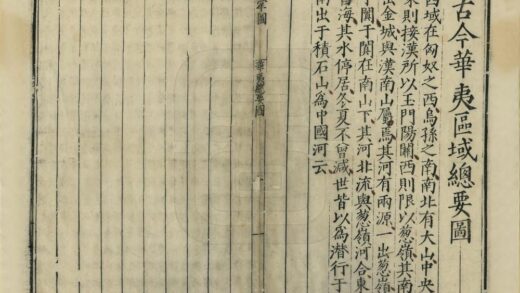 古今華夷區域總要圖
西域在匈奴之西烏孫之南南北有大山中央
東則接漢所以玉門陽關西則限以葱嶺其南
出金城與漢南山屬焉其河有兩源一出葱嶺
于闐于闐在南山下其河北流與葱嶺河合東
海其水停居冬夏不曾減世皆以爲潛行于
南出于積石山爲中國河云
華夷總要圖